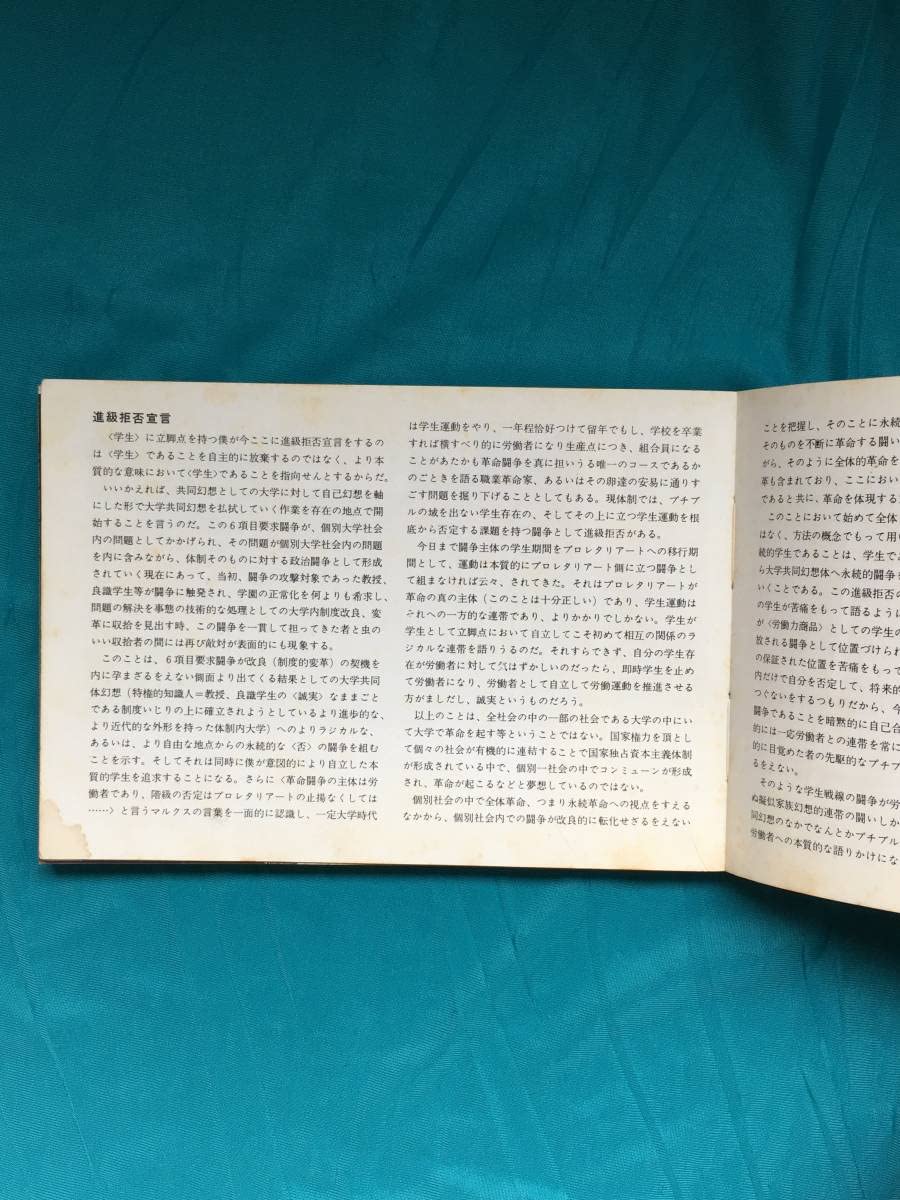 進級拒否宣言
〈学生〉に立脚点を持つ僕が今ここに進級拒否宣言をするの
は〈学生〉であることを自主的に放棄するのではなく、より本
質的な意味において〈学生〉であることを指向せんとするからだ。
いいかえれば、共同幻想としての大学に対して自己幻想を軸
にした形で大学共同幻想を払拭していく作業を存在の地点で開
始することを言うのだ。この6項目要求闘争が、個別大学社会
内の問題としてかかげられ、その問題が個別大学社会内の問題
を内に含みながら、体制そのものに対する政治闘争として形成
されていく現在にあって、当初、闘争の攻撃対象であった教授、
良識学生等が闘争に触発され、学園の正常化を何よりも希求し、
問題の解決を事態の技術的な処理としての大学内制度改良、変
革に収拾を見出す時、この闘争を一貫して担ってきた者と虫の
いい収拾者の間には再び敵対が表面的にも現象する。
このことは、6項目要求闘争が改良（制度的変革）の契機を
内に孕まざるをえない側面より出てくる結果としての大学共同
体幻想（特権的知識人＝教授、良識学生の〈誠実〉なままごと
である制度いじりの上に確立されようとしているより進歩的な、
より近代的な外形を持った体制内大学）へのよりラジカルな、
あるいは、より自由な地点からの永続的な〈否〉の闘争を組む
ことを示す。そしてそれは同時に僕が意図的により自立した本
質的学生を追求することになる。さらに〈革命闘争の主体は労
働者であり、階級の否定はプロレタリアートの止揚なくしては
……〉と言うマルクスの言葉を一面的に認識し、一定大学時代
は学生運動をやり、一年程恰好つけて留年でもし、学校を卒業
すれば横すべり的に労働者になり生産点につき、組合員になる
ことがあたかも革命闘争を真に担いうる唯一のコースであるか
のごときを語る職業革命家、あるいはその卵達の安易に通りす
ごす問題を掘り下げることとしてもある。現体制では、プチブ
ルの域を出ない学生存在の、そしてその上に立つ学生運動を根
底から否定する課題を持つ闘争として進級拒否がある。
今日まで闘争主体の学生期間をプロレタリアートへの移行期
間として、運動は本質的にプロレタリアート側に立つ闘争とし
て組まなければ云々、されてきた。それはプロレタリアートが
革命の真の主体（このことは十分正しい）であり、学生運動は
それへの一方的な連帯であり、よりかかりでしかない。学生が
学生として立脚点において自立してこそ初めて相互の関係のラ
ジカルな連帯を語りうるのだ。それすらできず、自分の学生存
在が労働者に対して気はずかしいのだったら、即時学生を止め
て労働者になり、労働者として自立して労働運動を推進させる
方がましだし、誠実というものだろう。
以上のことは、全社会の中の一部の社会である大学の中にい
て大学で革命を起す等ということではない。国家権力を頂とし
て個々の社会が有機的に連結することで国家独占資本主義体制
が形成されている中で、個別一社会の中でコンミューンが形成
され、革命が起こるなどと夢想しているのではない。
個別社会の中で全体革命、つまり永続革命への視点をすえる
なかから、個別社会内での闘争が改良的に転化せざるをえない
ことを把握し、そのことに永続
そのものを不断に革命する闘い
がら、そのように全体的革命を
革も含まれており、ここにおい
であると共に、革命を体現する
このことにおいて始めて全体
はなく、方法の概念でもって用い
続的学生であることは、学生であ
ら大学共同幻想体へ永続的闘争を
いくことである。この進級拒否の
の学生が苦痛をもって語るように
が〈労働力商品〉としての学生の
放される闘争として位置づけられ
の保証された位置を苦痛をもって
内だけで自分を否定して、将来的
つぐないをするつもりだから、今
闘争であることを暗黙的に自己合
的には一応労働者との連帯を常に
的に目覚めた者の先駆的なプチブ
るをえない。
そのような学生戦線の闘争が労
ぬ擬似家族幻想的連帯の闘いしか
同幻想のなかでなんとかプチブル
労働者への本質的な語りかけにな